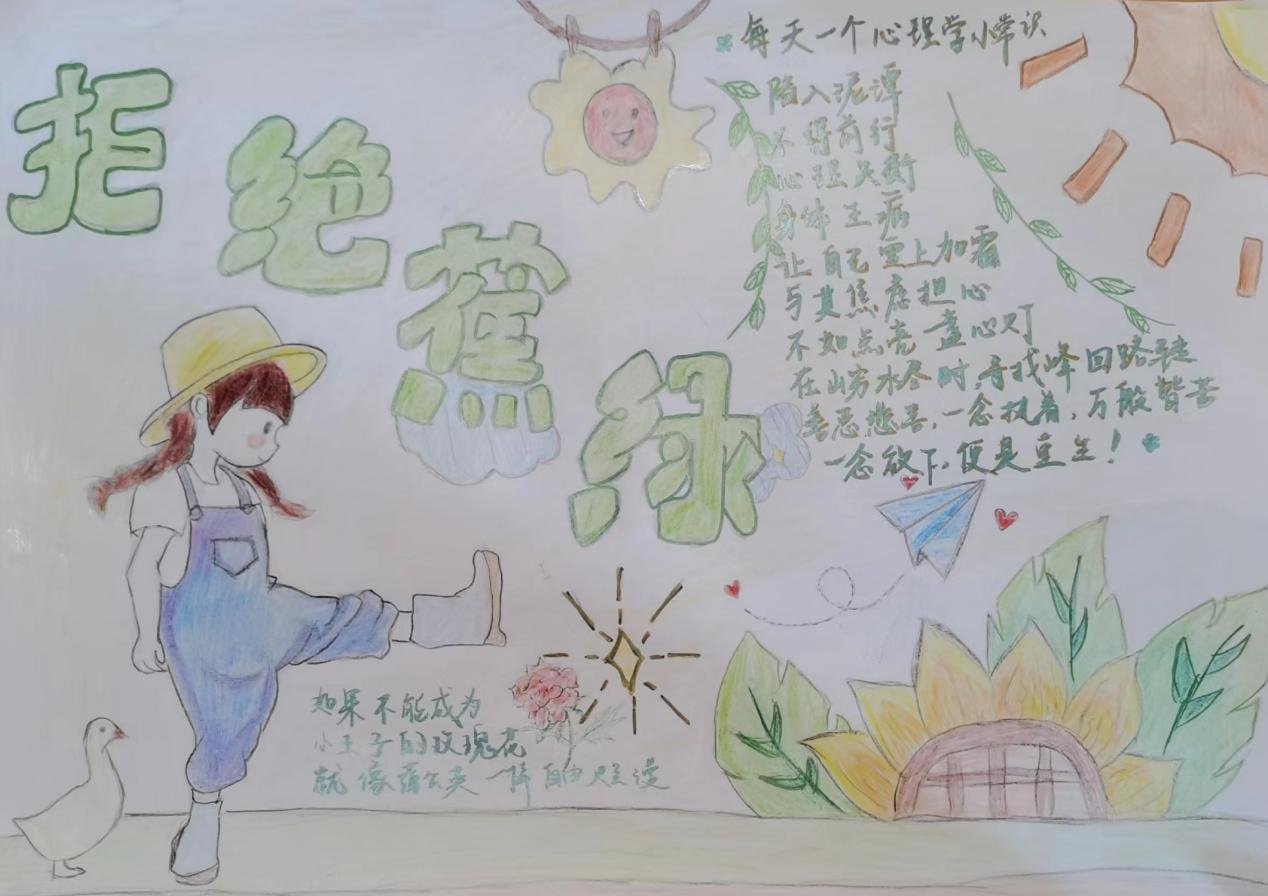 拒绝蕉绿
每天一个心理学小常识
陷入泥潭
不得前行
心理失衡
身体生病
让自己雪上加霜
与其焦虑担心
不如点亮一盏心灯
在山穷水尽时,寻找峰回路转
善恶悲喜,一念执着,万般皆苦
一念放下,便是重生!
如果不能成为
小王子的玫瑰花
就像蒲公英一阵自由烂漫